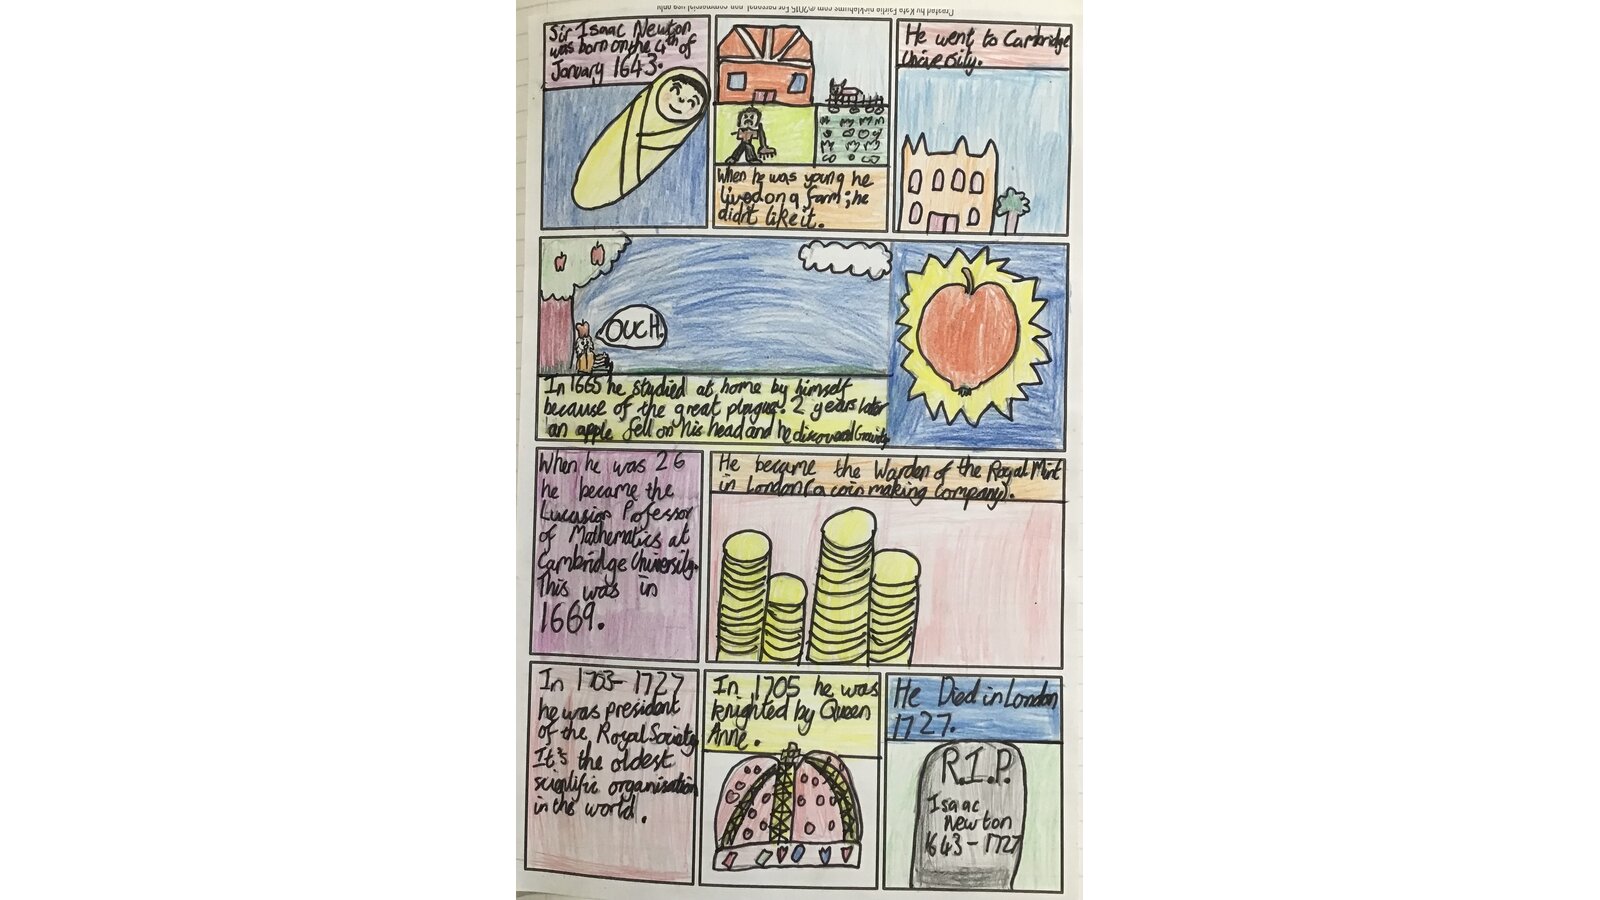 Created by Kate Fairlie nicklebums.com ©2015 For personal, non commercial use only
Sir Isaac Newton
was born on the 4th of
January 1643.
When he was young he
lived on a farm; he
didn't like it.
He went to Cambridge
University.
OUCH.
In 1665 he studied at home by himself
because of the great plague. 2 years later
an apple fell on his head and he discovered Gravity
When he was 26
he became the
Lucasian Professor
of Mathematics at
Cambridge University.
This was in
1669.
He became the Warden of the Royal Mint
in London (a coin making company).
In 1703-1727
he was president
of the Royal Society
It's the oldest
scientific organisation
in the world.
In 1705 he was
knighted by Queen
Anne.
He Died in London
1727.
R.I.P.
Isaac
Newton
1643-1727